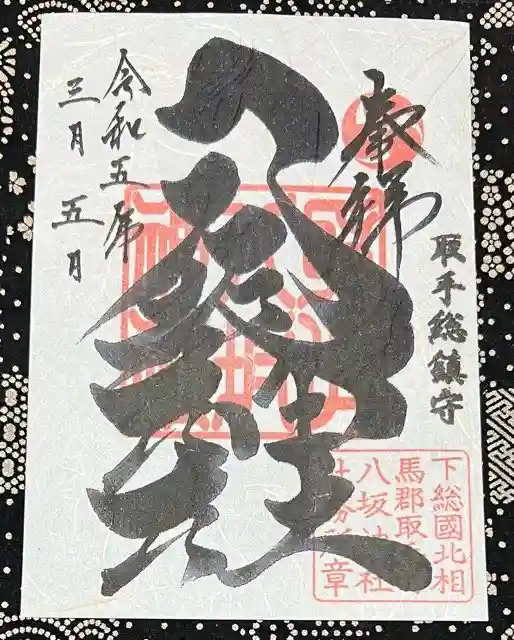 奉拝
取手総鎮守
八坂神社
令和五年
三月五日
下総國北相
馬郡取
八坂神社
社務所章